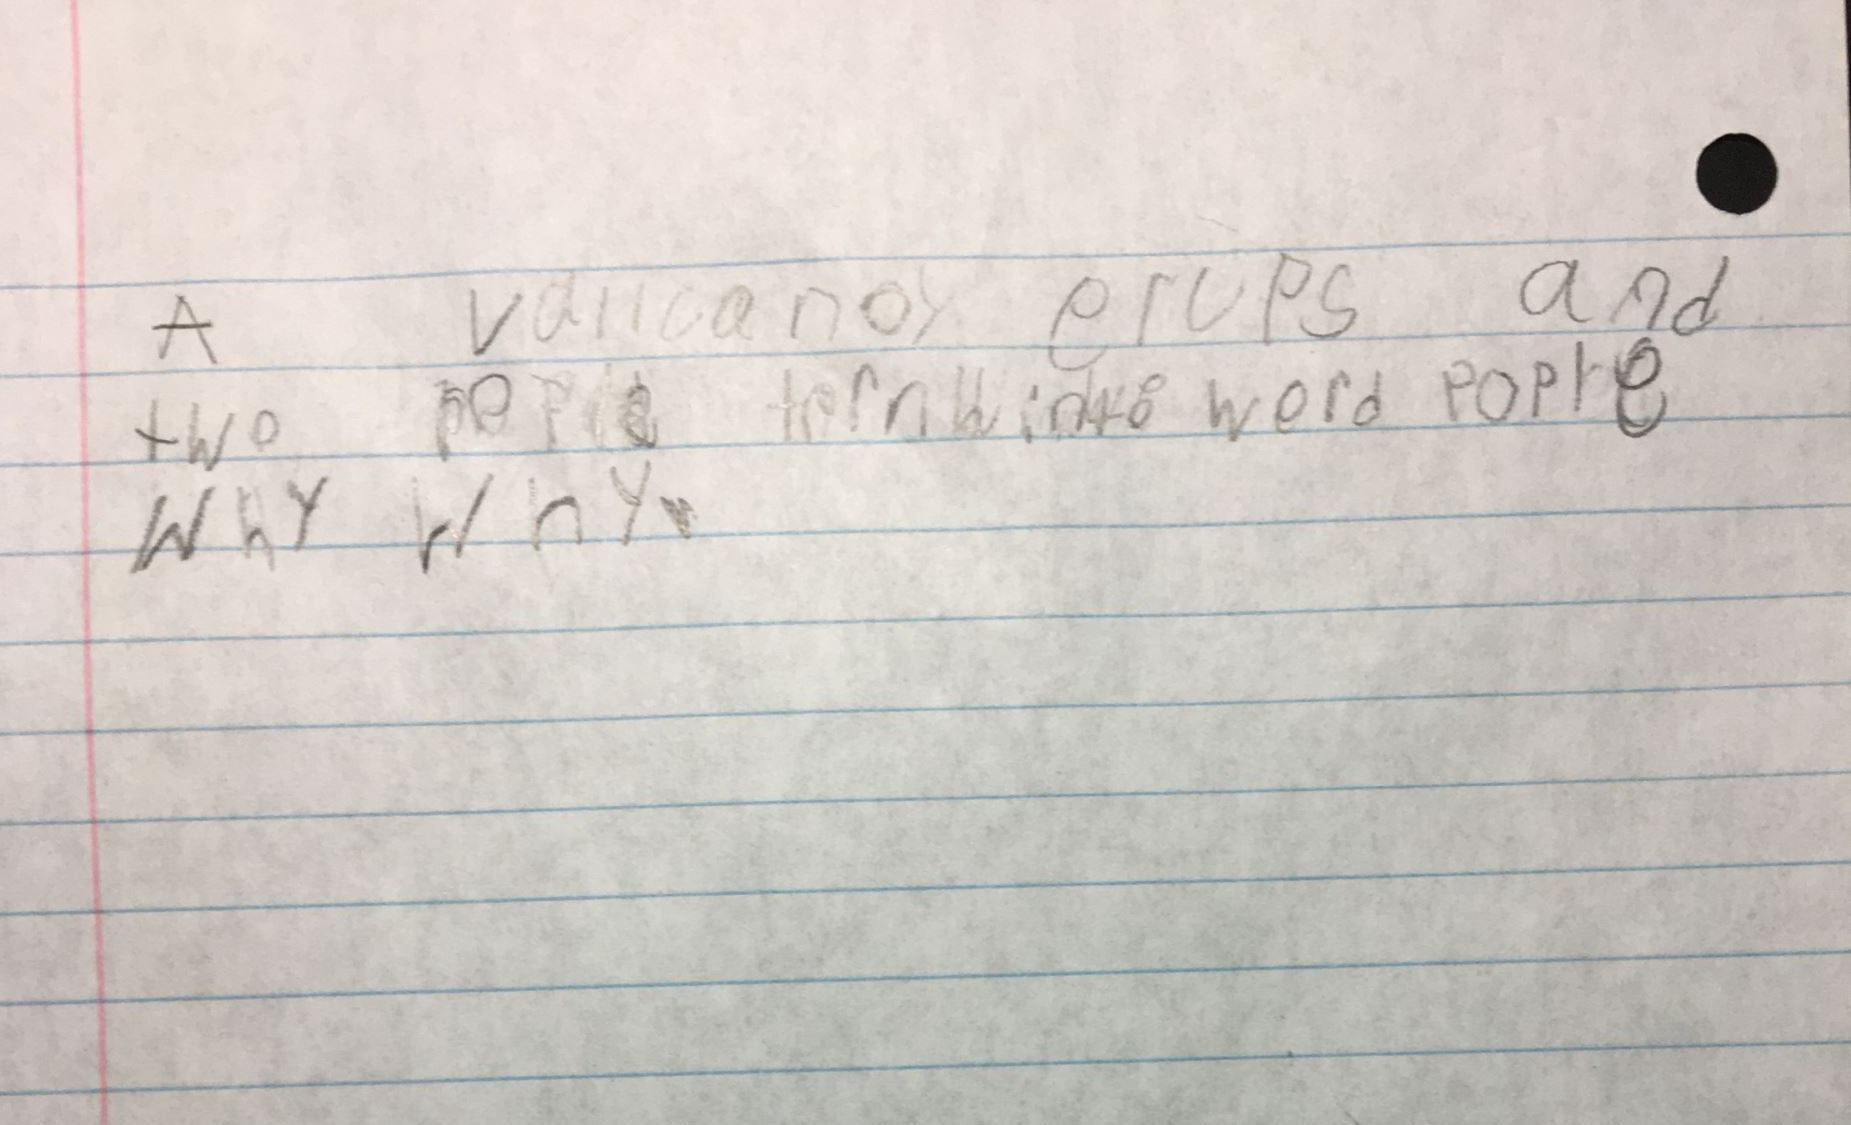 A vallcanoy erups and
two peple ternd into word pople
Why Why.